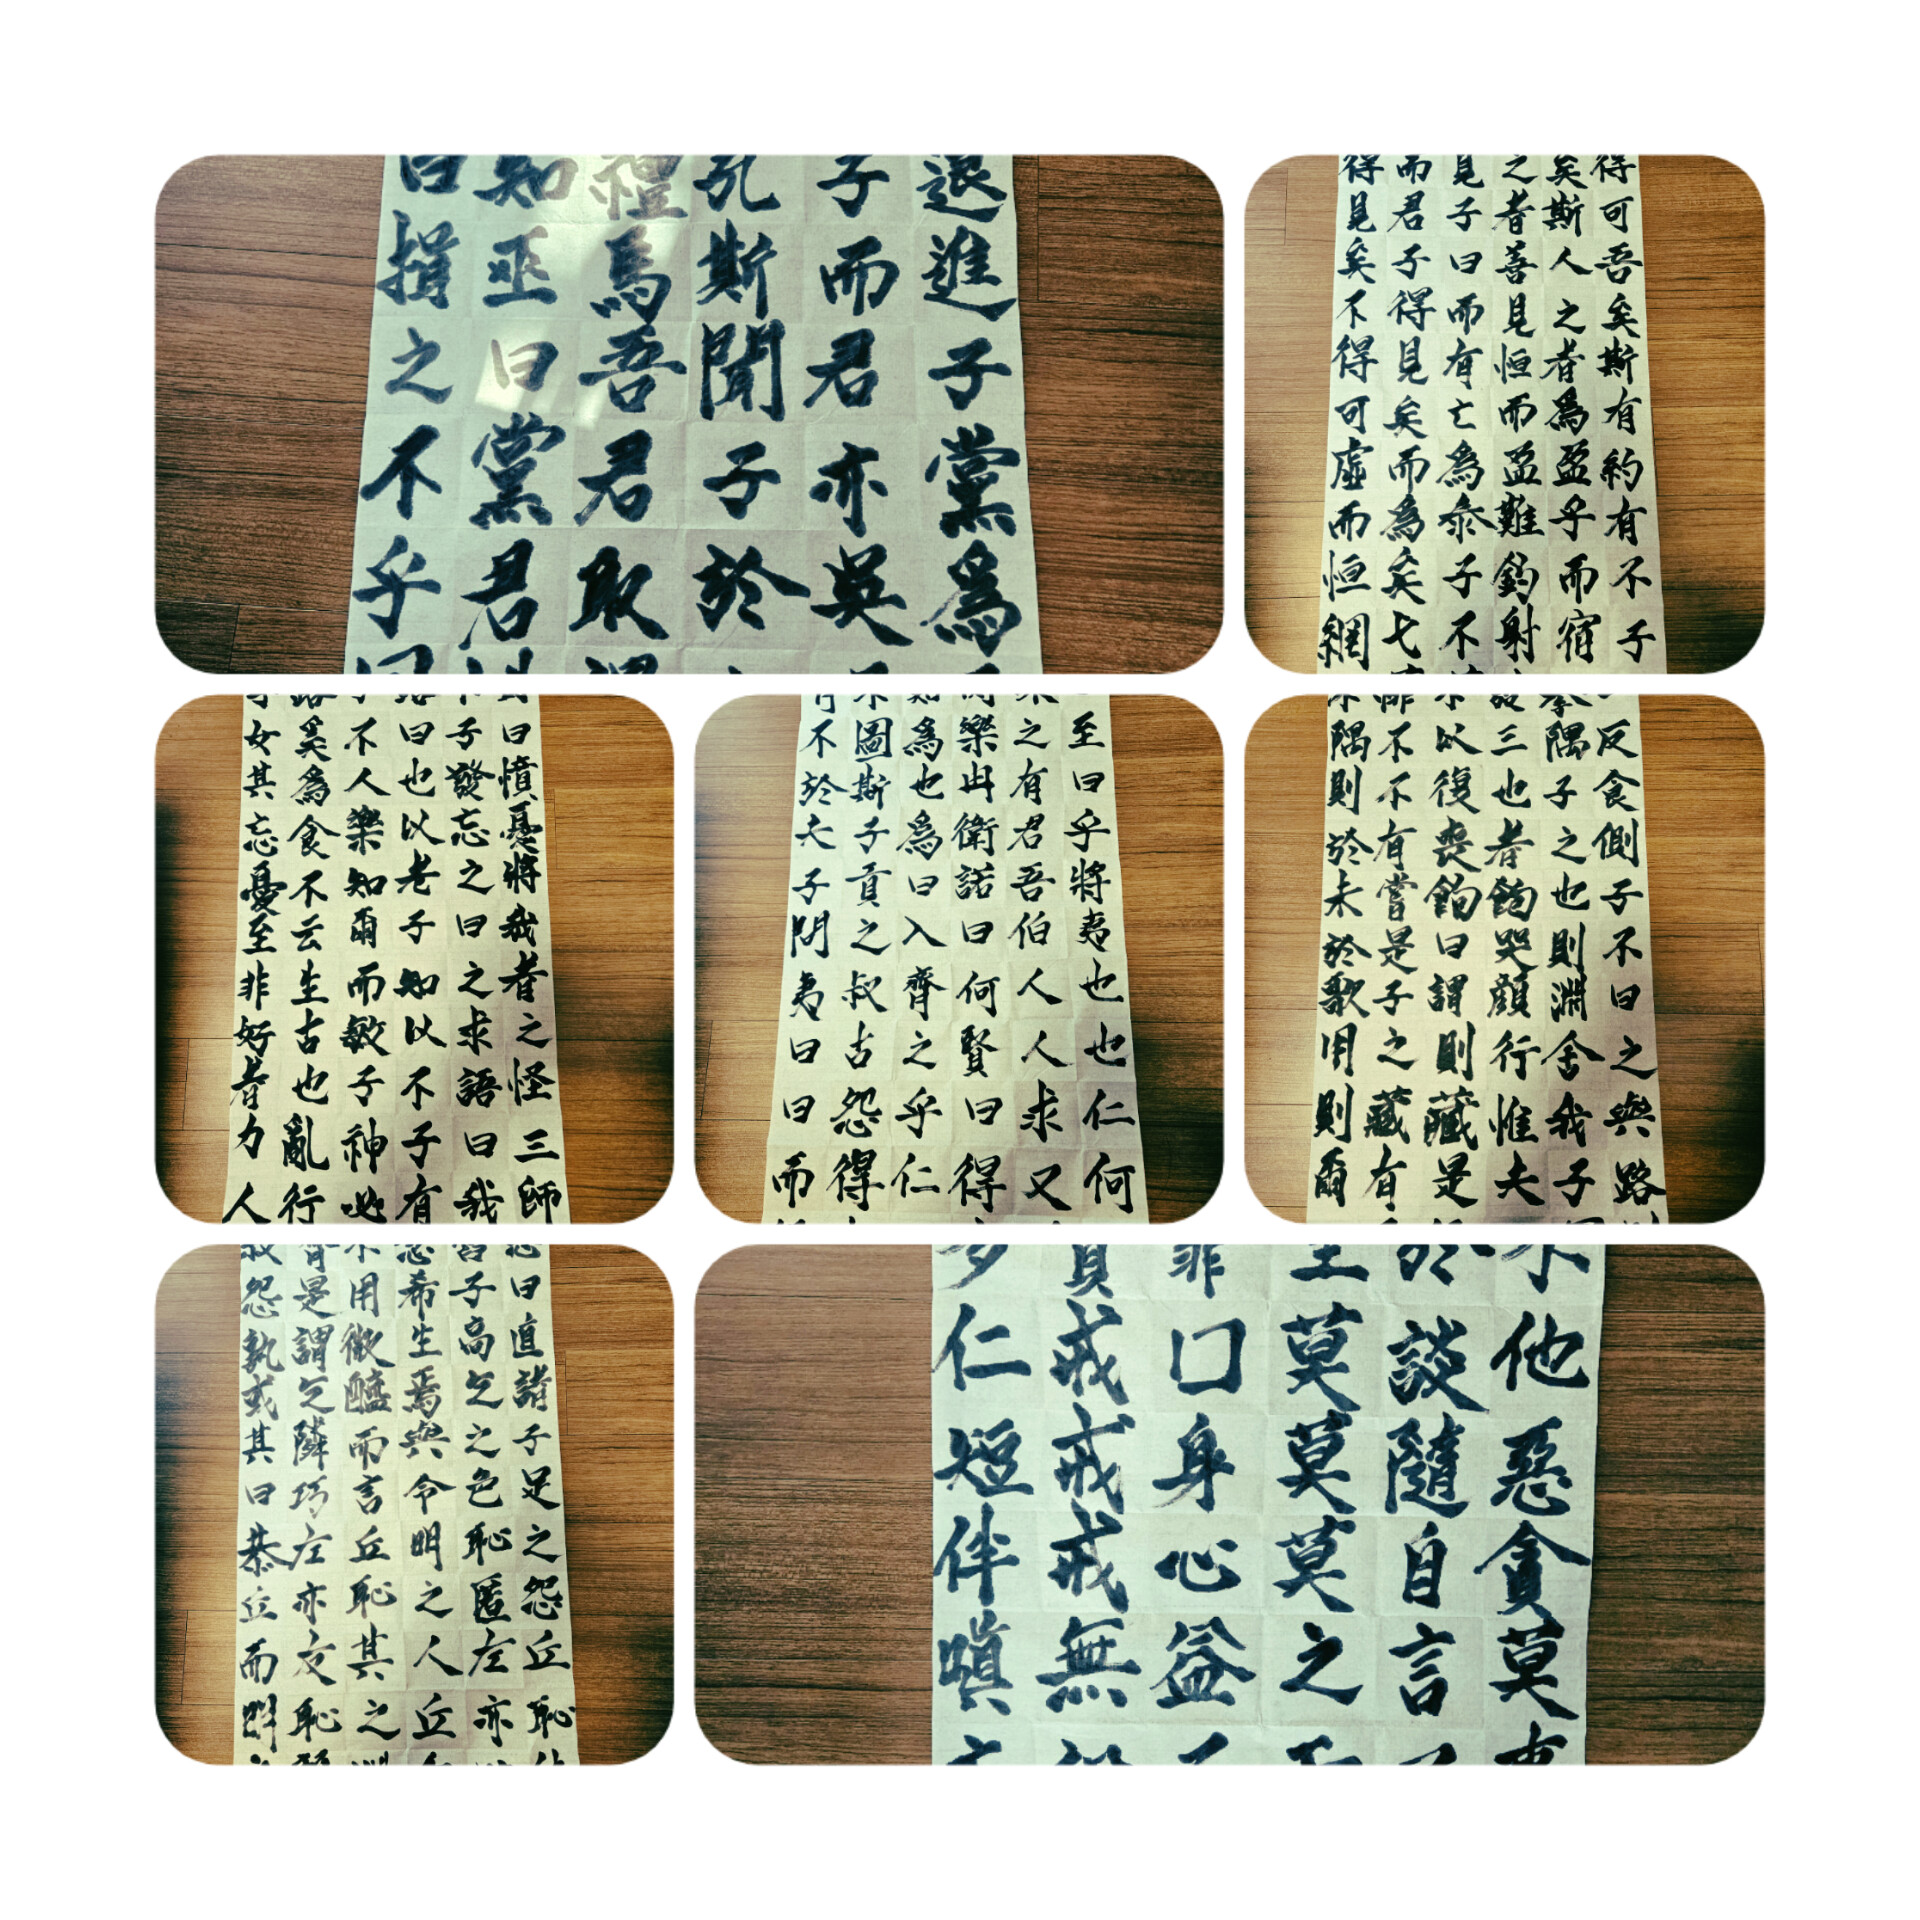 曰知禮孔子退
揖巫馬斯而進
之曰吾聞君子
不黨君子亦黨
乎君取於吳爲
得而見之矣得
見君子者斯可
矣子曰善人吾
不得而見之矣
得見有恒者斯
可矣亡而爲有
虛而爲盈盈約
而爲泰難乎有
恒矣子釣而不
網弋不射宿子
女奚不曰子曰
其爲人也發憤
忘食樂以忘憂
憂不知老之將
至云爾子曰我
非生而知之者
好古敏以求之
者也子不語怪
力亂神子曰三
人行必有我師
不圖爲樂之至
於斯也冉有曰
夫子爲衛君乎
子貢曰諾吾將
問之入曰伯夷
夷叔齊何人也
曰古之賢人也
曰怨乎曰求仁
而得仁得又何
隅不以三隅反
則不復也子食
於有喪者之側
未嘗飽飽也子
於是曰哭則不
歌子謂顏淵曰
用之則行舍之
則藏藏惟我與
爾有是夫子路
怨是用希子曰
孰謂微生高直
或乞醯焉乞諸
其隣而與之子
曰巧言令色足
恭左丘明恥之
丘亦恥之匿怨
而友其人左丘
明恥之丘亦恥
仁戒口莫談他
短戒身莫隨惡
伴戒心莫自貪
嗔無益之言莫